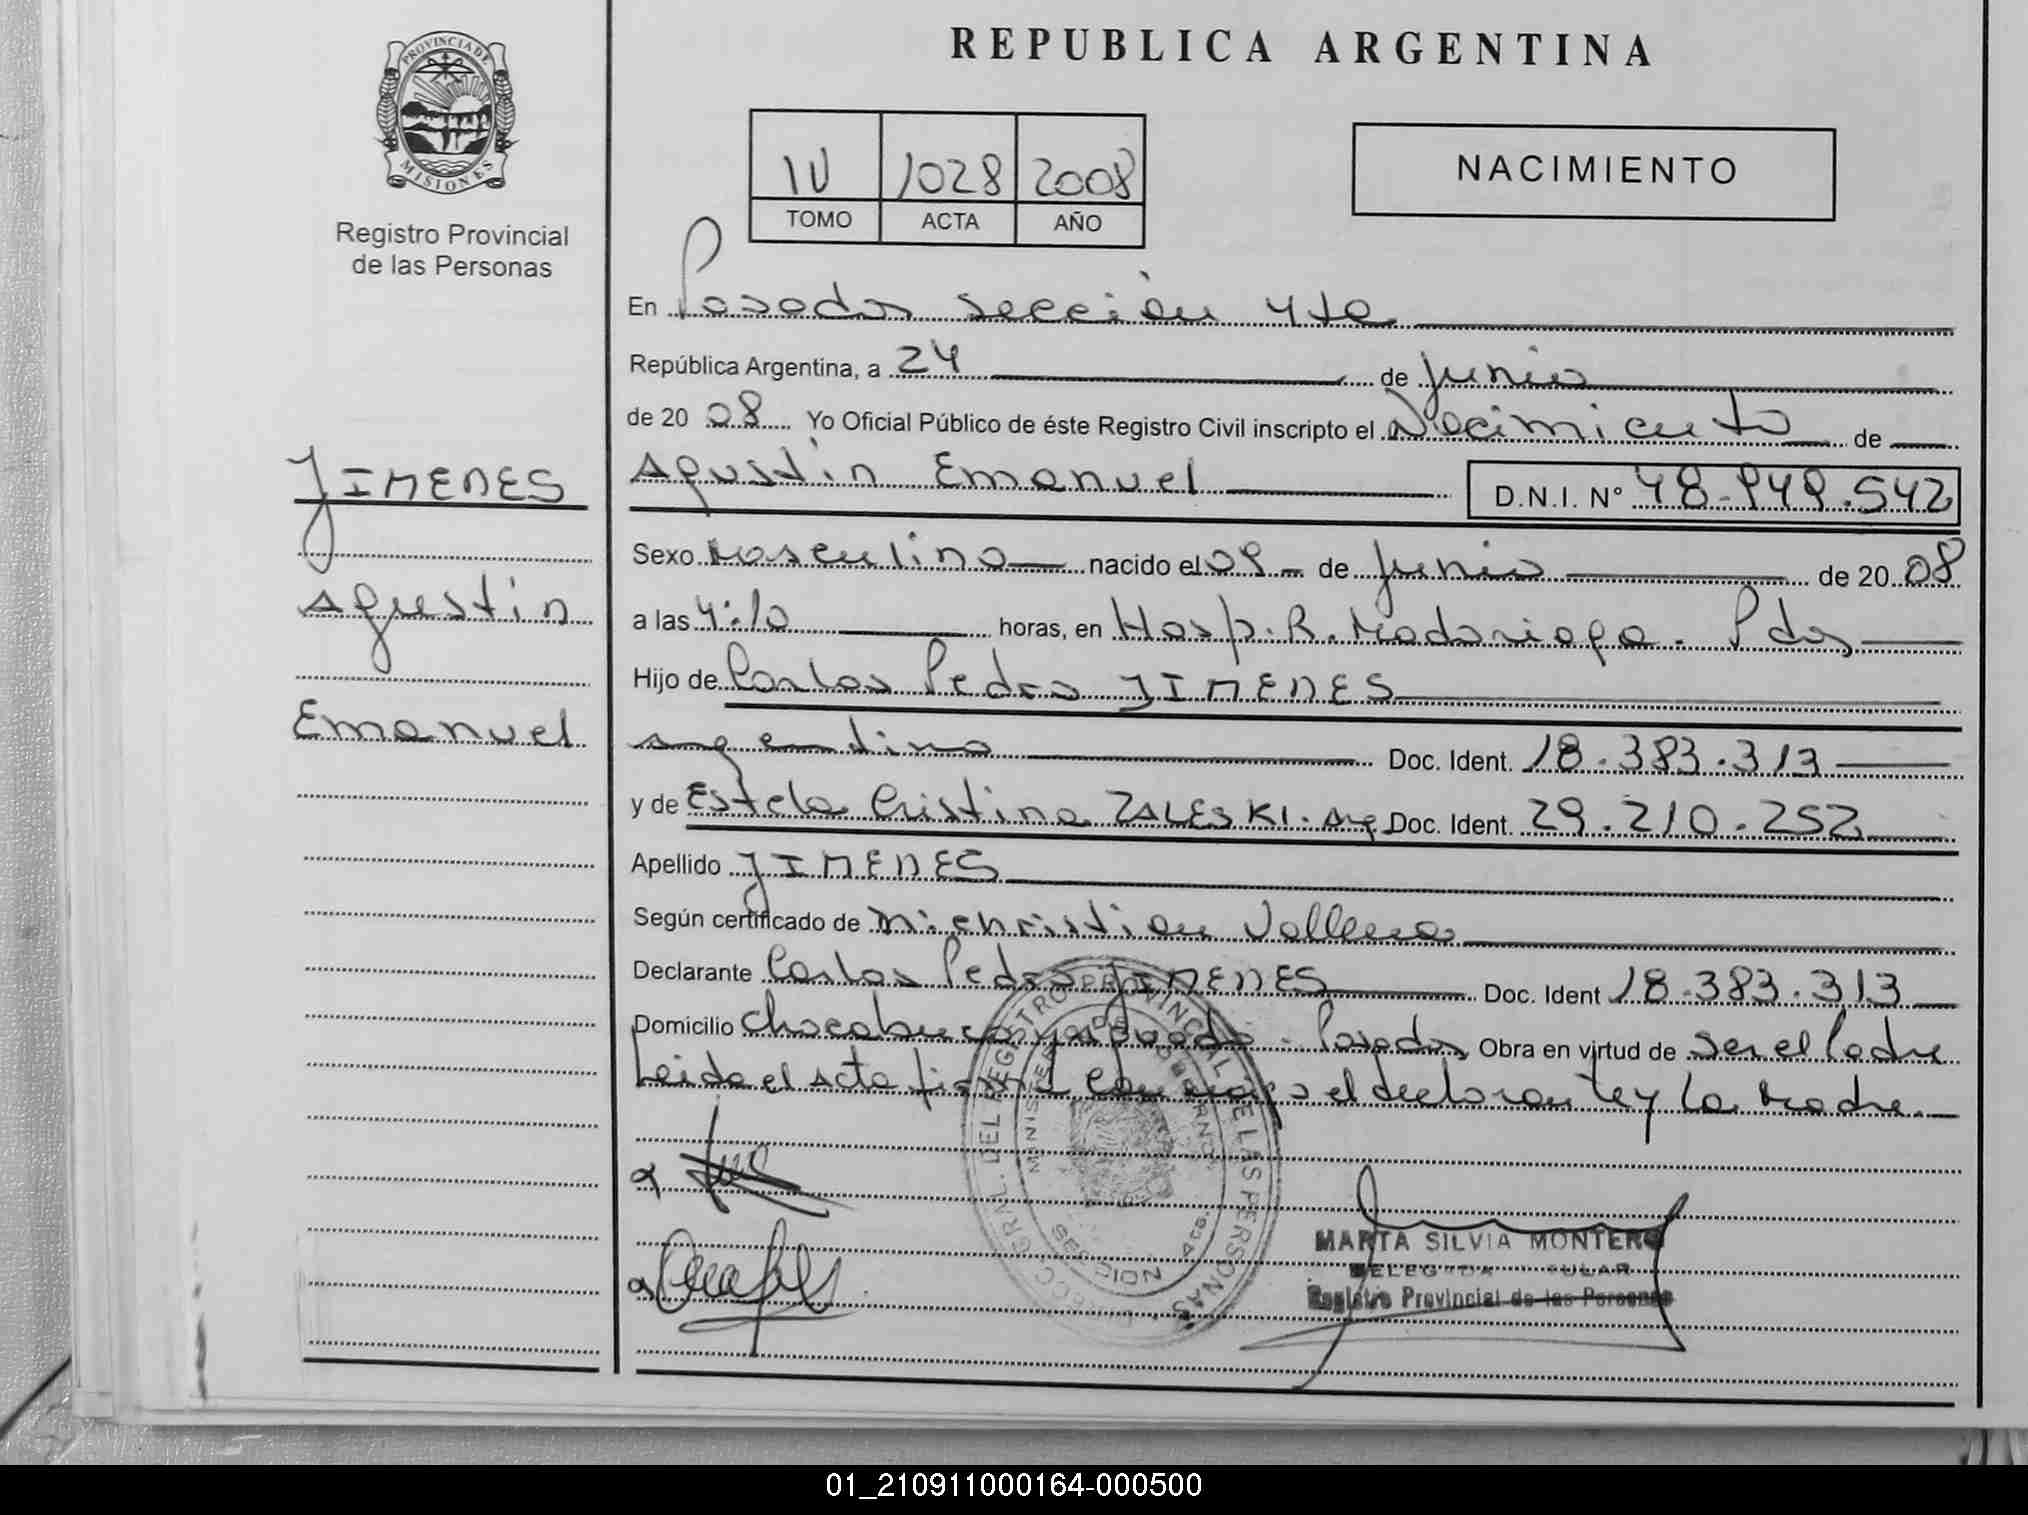 PROVINCIA DE
MISIONES
Registro Provincial
de las Personas
JIMENES
Agustín
Emanuel
REPUBLICA ARGENTINA
IV 1028 2008
TOMO ACTA AÑO
NACIMIENTO
En Posadas sección 4ta
República Argentina, a 24 de junio
de 20 08 Yo Oficial Público de éste Registro Civil inscripto el Nacimiento de
Agustín Emanuel D.N.I. Nº 48.949.542
Sexo Masculino nacido el 09 de junio de 20 08
a las 4:10 horas, en Hosp. R. Madariaga. Pdas
Hijo de Carlos Pedro JIMENES
argentino Doc. Ident. 18.383.313
y de Estela Cristina ZALESKI. Arg Doc. Ident. 29.210.252
Apellido JIMENES
Según certificado de
Declarante Carlos Pedro JIMENES Doc. Ident 18.383.313
Domicilio Chacabuco y Posadas Obra en virtud de ser el Padre
Leida el acta firma conmigo el declarante y la Madre.
DIRECC. GRAL. DEL REGISTRO PROVINCIAL DE LAS PERSONAS
MINISTERIO DE GOBIERNO
SECCION 4ta.
MARTA SILVIA MONTERO
DELEGADA TITULAR
Registro Provincial de las Personas
01_210911000164-000500